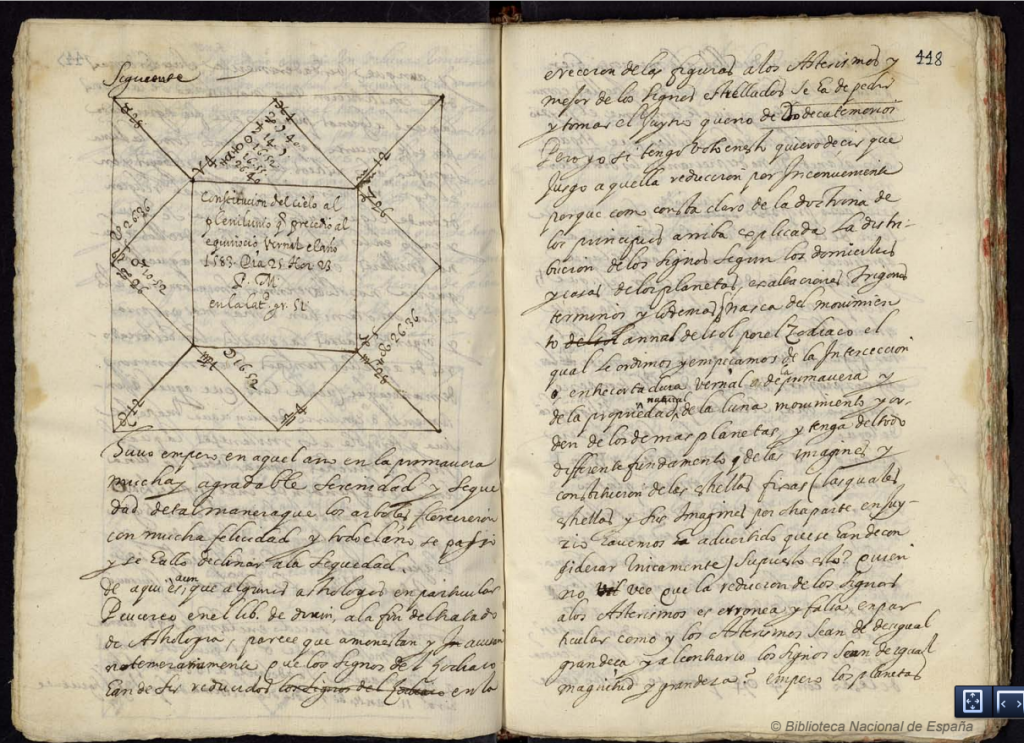 Siguiente
Constitucion del cielo al
plenilunio q precedio al
equinocio vernal el año
1583. Dia 25 Hor 23
P. M.
en la lat. gr. 51
Huuo empero en aquel año en la primauera
mucha y agradable serenidad y seque
dad de tal manera que los arboles florecieron
con mucha felicidad y todo el año se passo
y se hallo declinar a la sequedad.
de aqui es aun que algunos Astrologos en particular
Peucero en el lib. de diuin, a la fin del tratado
de Astrologia, parece que amonestan y
no temerariamente que los signos de el Zodiaco
han de ser reducidos los signos del Zodiaco en la
448
ereccion de las figuras a los Asterismos y
mejor de los signos estrellados se ha de pedir
y tomar el Juyzio que no de Dodecatemorios
Pero yo si tengo voto en esto quiero decir que
Jusgo a quella reduccion por Inconueniente
porque como consta claro de la doctrina de
los principios arriba explicada la distri-
bucion de los signos segun los domicilios
y casas de los planetas, exaltaciones Trigonos
terminos y lo demas nasca del mouimien
to del sol annal del sol por el Zodiaco el
qual le ordimos y empecamos de la Interceccion
o enhecortadura vernal o de primauera y
de la propriedad natural de la luna mouimiento y or-
den de los demas planetas, y tenga del todo
differente fundamento q de las imagines y
constitucion de las estrellas fixas (las quales
estrellas y sus Imagines por otra parte en juy
zio hauemos aducitido que se han de con
siderar Unicamente) supuesto esto? quien
no veo que la reducion de los signos
a los Asterismos es erronea y falsa, en par
ticular como y los Asterismos sean de desigual
grandeza y al contrario los signos sean de igual
magnitud y grandeza? empero los planetas
© Biblioteca Nacional de España